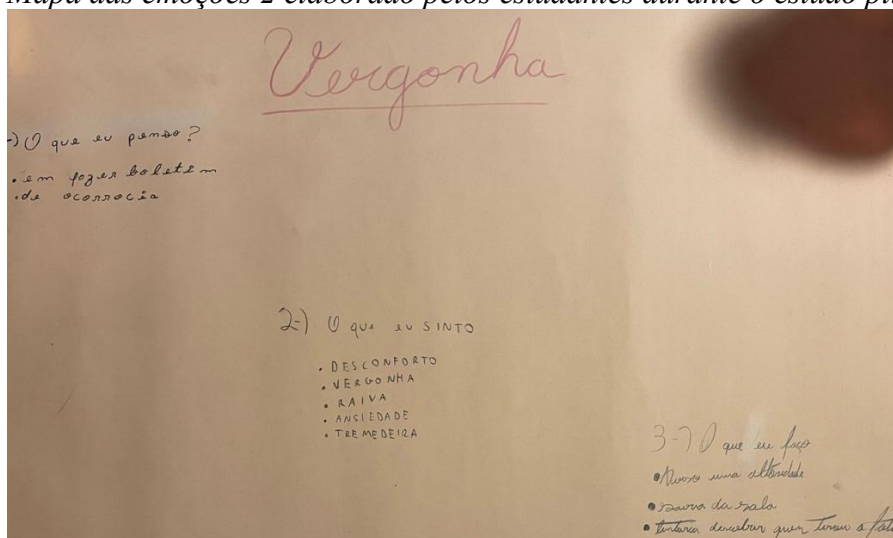 Mapa das emoções 2 elaborado pelos estudantes durante o estudo
Vergonha
-) O que eu penso?
• em fozer boletem
• de ocorrocia
2-) O que eu SINTO
• DESCONFORTO
• VERGONHA
• RAIVA
• ANSIEDADE
• TREMEDEIRA
3-) O que eu faço
• uma
• da sala
• quem tirou a